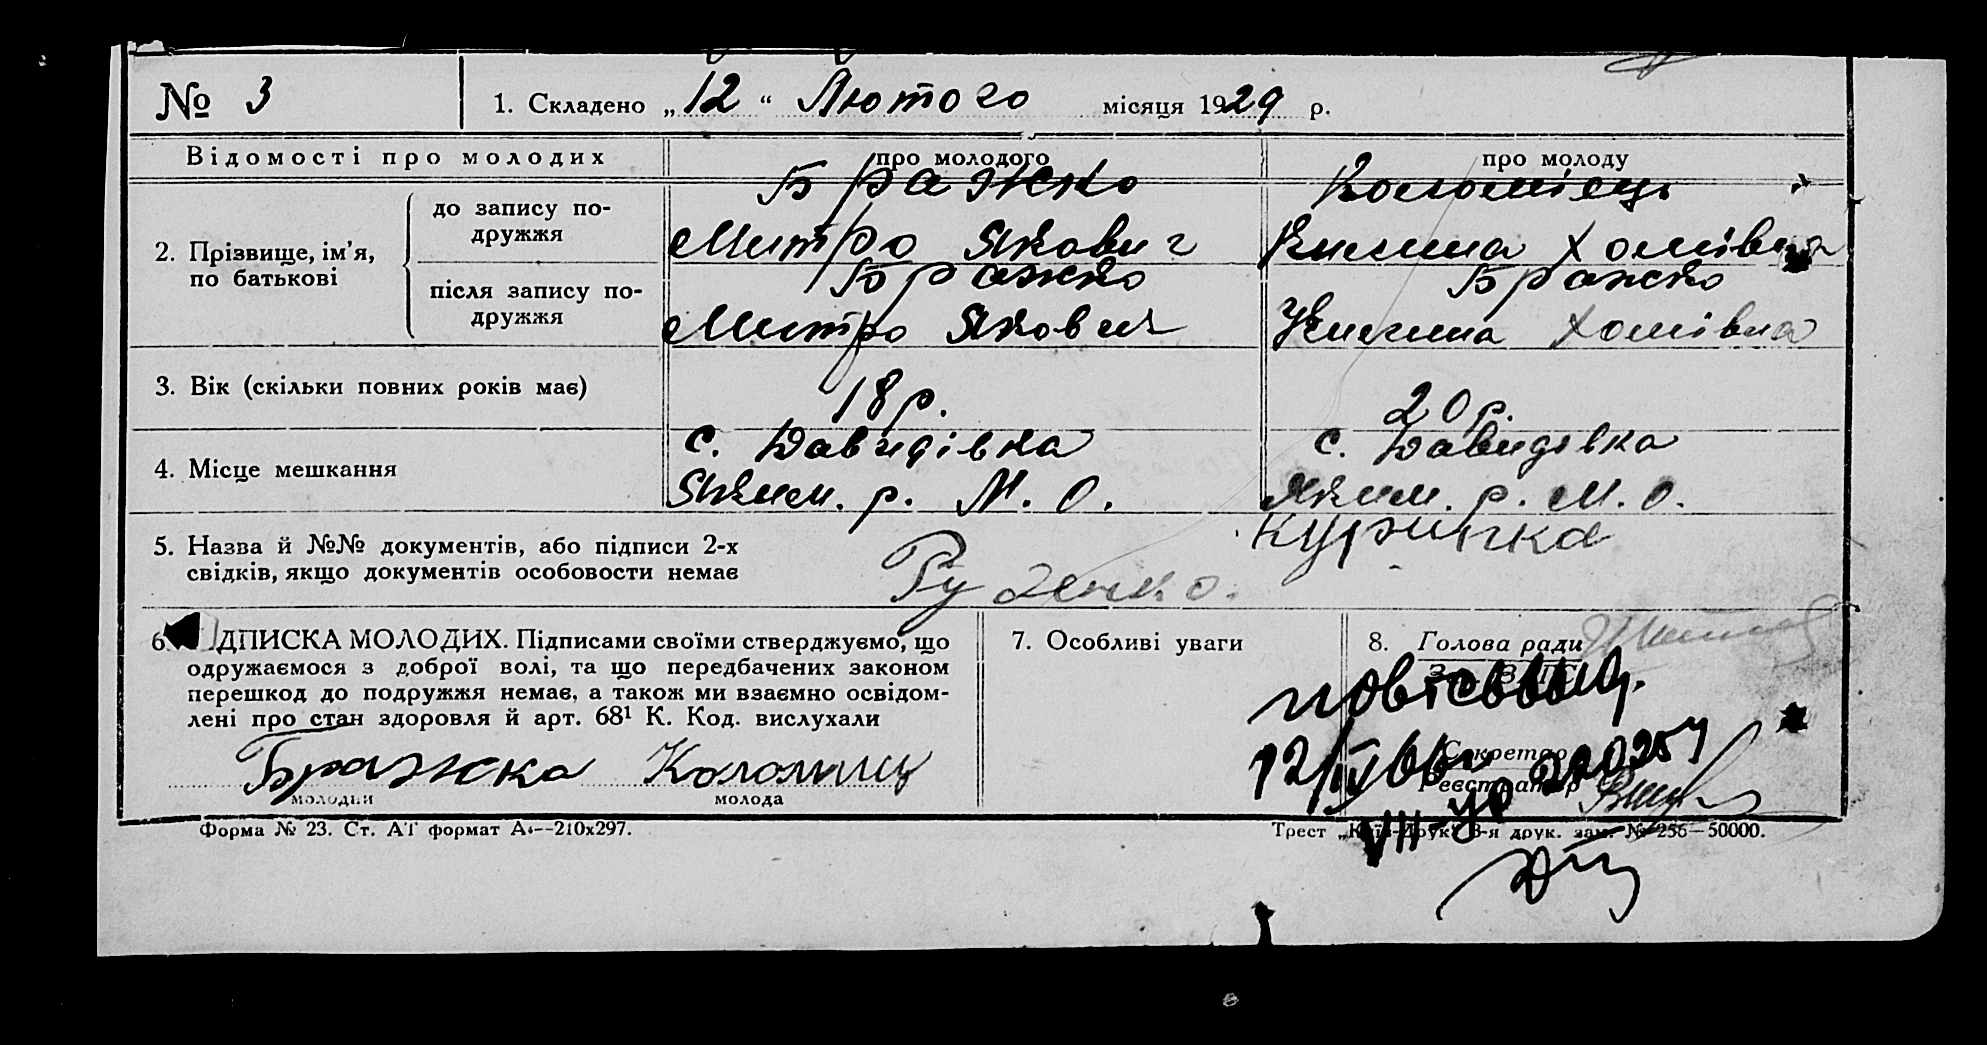 № 3
1. Складено „12“ Лютого місяця 1929 р.
Відомості про молодих
про молодого
про молоду
2. Прізвище, ім’я, по батькові
до запису по-
дружжя
Бражко
Митро Якович
Коломієць
Килина Хомівна
після запису по-
дружжя
Бражко
Митро Якович
Бражко
Килина Хомівна
3. Вік (скільки повних років має)
18 р.
20 р.
4. Місце мешкання
с. Давидівка
Яким. р. М. О.
с. Давидівка
Яким. р. М. О.
5. Назва й №№ документів, або підписи 2-х
свідків, якщо документів особовости немає
6. ДПИСКА МОЛОДИХ. Підписами своїми стверджуємо, що
одружаємося з доброї волі, та що передбачених законом
перешкод до подружжя немає, а також ми взаємно освідом-
лені про стан здоровля й арт. 68¹ К. Код. вислухали
Бражка
молодий
молода
7. Особливі уваги
8. Голова ради
Секретар
Реєстратор
Форма № 23. Ст. АТ формат А₄—210х297.
Трест „Київ-Друк“ 3-я друк. зам. № 256—50000.